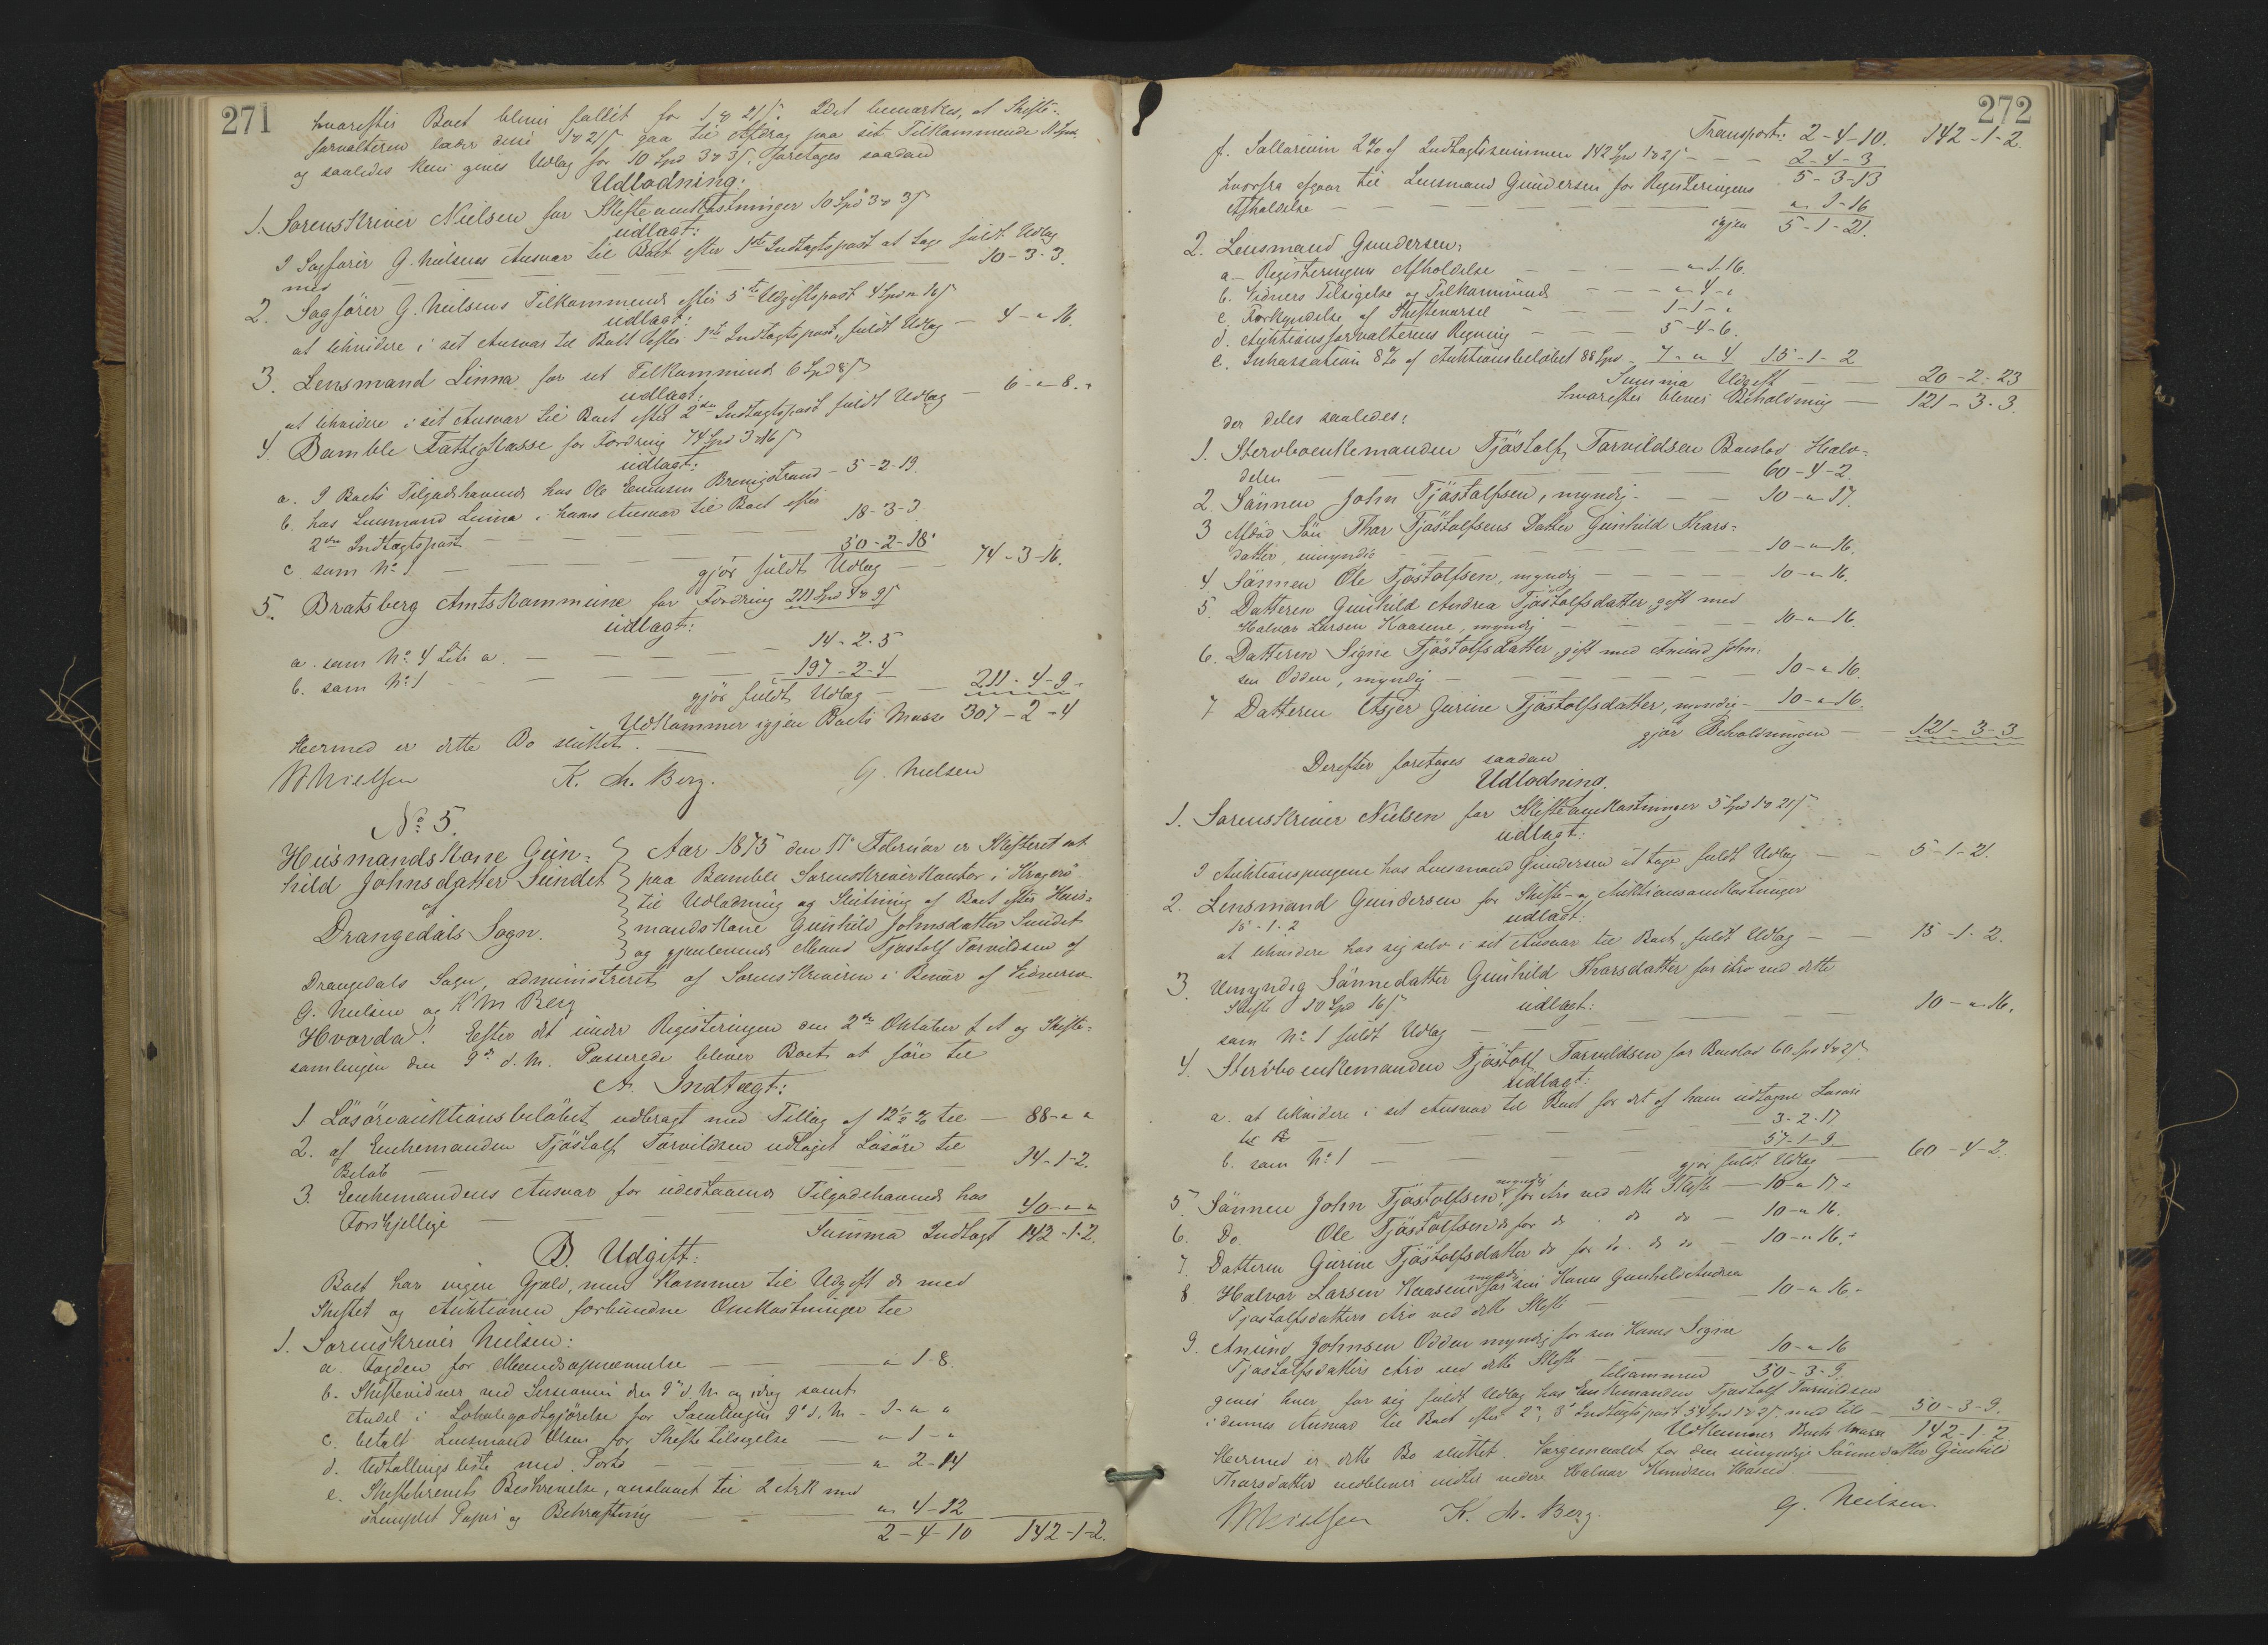 271
hvorefter Boet bliver fallit for 1 # 21 ß. Idet bemærkes, at Skifte-
forvalteren lader disse 1 # 21 ß gaa til Afdrag paa sit Tilkommende 11 Spd
og saaledes kun gives Udlæg for 10 Spd 3 # 3 ß, foretages saadan
Udlodning:
1. Sorenskriver Nielsen for Skifteomkostninger 10 Spd 3 # 3 ß
udlagt:
I Sagfører G. Nielsens Ansvar til Boet efter 1ste Indtægtspost at tage fuldt Udlæg
med — 10-3-3.
2. Sagfører G. Nielsens Tilkommende efter 5te Udgiftspost 4 Spd " 16 ß
udlagt:
at likvidere i sit Ansvar til Boet efter 1ste Indtægtspost, fuldt Udlæg — 4-"-16.
3. Lensmand Linna for sit Tilkommende 6 Spd 8 ß
udlagt:
at likvidere i sit Ansvar til Boet efter 2den Indtægtspost fuldt Udlæg — 6-"-8.
4. Bamble Fattigkasse for Fordring 74 Spd 3 # 16 ß
udlagt:
a. I Boets Tilgodehavende hos Ole Brevigstrand — 5-2-19.
b. hos Lensmand Linna i hans Ansvar til Boet efter
2den Indtægtspost — 18-3-3
c. som No 1 — 50-2-18
gjør fuldt Udlæg — 74-3-16.
5. Bratsberg Amtskommune for Fordring 211 Spd 4 # 9 ß
udlagt:
a. som No 4 Litr a. — 14-2-5
b. som No 1 — 197-2-4
gjør fuldt Udlæg — 211-4-9.
Udkommer igjen Boets Masse 307-2-4
Hermed er dette Bo sluttet.
Nielsen K. M. Berg. G. Nielsen
No 5.
Husmandskone Gun-
hild Johnsdatter Sundet
af
Drangedals Sogn.
Aar 1875 den 11te Februar er Skifteret sat
paa Bamble Sorenskriverkontor i Kragerö
til Udlodning og Slutning af Boet efter Hus-
mandskone Gunhild Johnsdatter Sundet
og gjenlevende Mand Tjöstolf Torvildsen af
Drangedals Sogn, administreret af Sorenskriveren i Benær af Vidnerne
G. Nielsen og K M Berg
Hvorda! Efter det under Registeringen den 2den Oktober f. A og Skifte-
samlingen den 9de d. M. Passerede bliver Boet at före til
A. Indtægt:
1 Lösöreauktionsbelöbet, udbragt med Tillæg af 12½ % til — 88-"-"
2. af Enkemanden Tjöstolf Torvildsen udtaget Lösöre til
Belöb — 14-1-2.
3. Enkemandens Ansvar for udestaaende Tilgodehavende hos
Forskjellige — 40-"-"
Summa Indtægt 142-1-2.
B. Udgift:
Boet har ingen Gjæld, men kommer til Udgift de med
Skiftet og Auktionen forbundne Omkostninger til
1. Sorenskriver Nielsen:
a. Fogden for Mændsopnævnelse — "-1-8.
b. Skiftevidner ved Sessionen den 9de d. M. og idag samt
Andel i Lokalegodtgjörelse for Samlingen 9de d. M. — 1-"-"
c. betalt Lensmand Olsen for Skiftetilsigelse — "-1-"
d. Udtællingsliste med Porto — "-2-14
e. Skiftebrevets Beskrivelse, anslaaet til 2 Ark med
stemplet Papir og Bekræftning — "-4-12
2-4-10 142-1-2.
272
Transport: 2-4-10. 142-1-2.
f. Sallarium 2 % af Indtægtssummen 142 Spd 1 # 2 ß — 2-4-3
5-3-13
hvorfra afgaar til Lensmand Gundersen for Registeringens
Afholdelse — "-1-16
igjen 5-1-21.
2. Lensmand Gundersen:
a. Registeringens Afholdelse — "-1-16.
b. Vidners Tilsigelse og Tilkommende — "-4-"
c. Forkyndelse af Skiftevarsel — 1-1-"
d. Auktionsforvalterens Regning — 5-4-6.
e. Inkassation 8 % af Auktionsbelöbet 88 Spd — 7-"-4 15-1-2
Summa Udgift — 20-2-23
hvorefter bliver Beholdning — 121-3-3.
der deles saaledes:
1. Stervboenkemanden Tjöstolf Torvildsen Boeslod Halv-
delen — 60-4-2.
2. Sönnen John Tjöstolfsen, myndig — 10-"-17.
3 Afdöd Sön Thor Tjöstolfsens Datter Gunhild Thors-
datter, umyndig — 10-"-16.
4. Sönnen Ole Tjöstolfsen, myndig — 10-"-16.
5. Datteren Gunhild Andrea Tjöstolfsdatter, gift med
Halvor Larsen Kaasene, myndig — 10-"-16.
6. Datteren Signe Tjöstolfsdatter, gift med Anund John-
sen Odden, myndig — 10-"-16.
7 Datteren Gurine Tjöstolfsdatter, myndig — 10-"-16.
gjör Beholdningen — 121-3-3
Derefter foretages saadan
Udlodning.
1. Sorenskriver Nielsen for Skifteomkostninger 5 Spd 1 # 21 ß
udlagt:
I Auktionspengene hos Lensmand Gundersen at tage fuldt Udlæg — 5-1-21.
2. Lensmand Gundersen for Skifte- og Auktionsomkostninger
15-1-2 udlagt:
at likvidere hos sig selv i sit Ansvar til Boet, fuldt Udlæg — 15-1-2.
3. Umyndig Sönnedatter Gunhild Thorsdatter for Arv ved dette
Skifte 10 Spd 16 ß. udlagt:
som No 1 fuldt Udlæg — 10-"-16.
4. Stervboenkemanden Tjöstolf Torvildsen for Boeslod 60 Spd 4 # 2 ß.
udlagt:
a. at likvidere i sit Ansvar til Boet for det af ham udtagne Lösöre
— 3-2-17
b. som No 1 — 57-1-9
gjör fuldt Udlæg — 60-4-2.
5. Sönnen John Tjöstolfsen, myndig for Arv ved dette Skifte — 10-"-17
6. Do. Ole Tjöstolfsen do for do do do — 10-"-16.
7. Datteren Gurine Tjöstolfsdatter do for do. do do — 10-"-16.
8. Halvor Larsen Kaasene myndig for sin Kone Gunhild Andrea
Tjöstolfsdatters Arv ved dette Skifte — 10-"-16.
9. Anund Johnsen Odden myndig for sin Kone Signe
Tjöstolfsdatters Arv ved dette Skifte — 10-"-16
tilsammen 50-3-9.
gives hver for sig fuldt Udlæg hos Enkemanden Tjöstolf Torvildsen
i dennes Ansvar til Boet efter 2den, 3die Indtægtspost 54 Spd 1 # 2 ß. med tils — 50-3-9.
Udkommer Boets Masse 142-1-2
Hermed er dette Bo sluttet. Værgemaalet for den umyndige Sönnedatter Gunhild
Thorsdatter nedbliver indtil videre Halvor Knudsen
Nielsen K. M. Berg. G. Nielsen